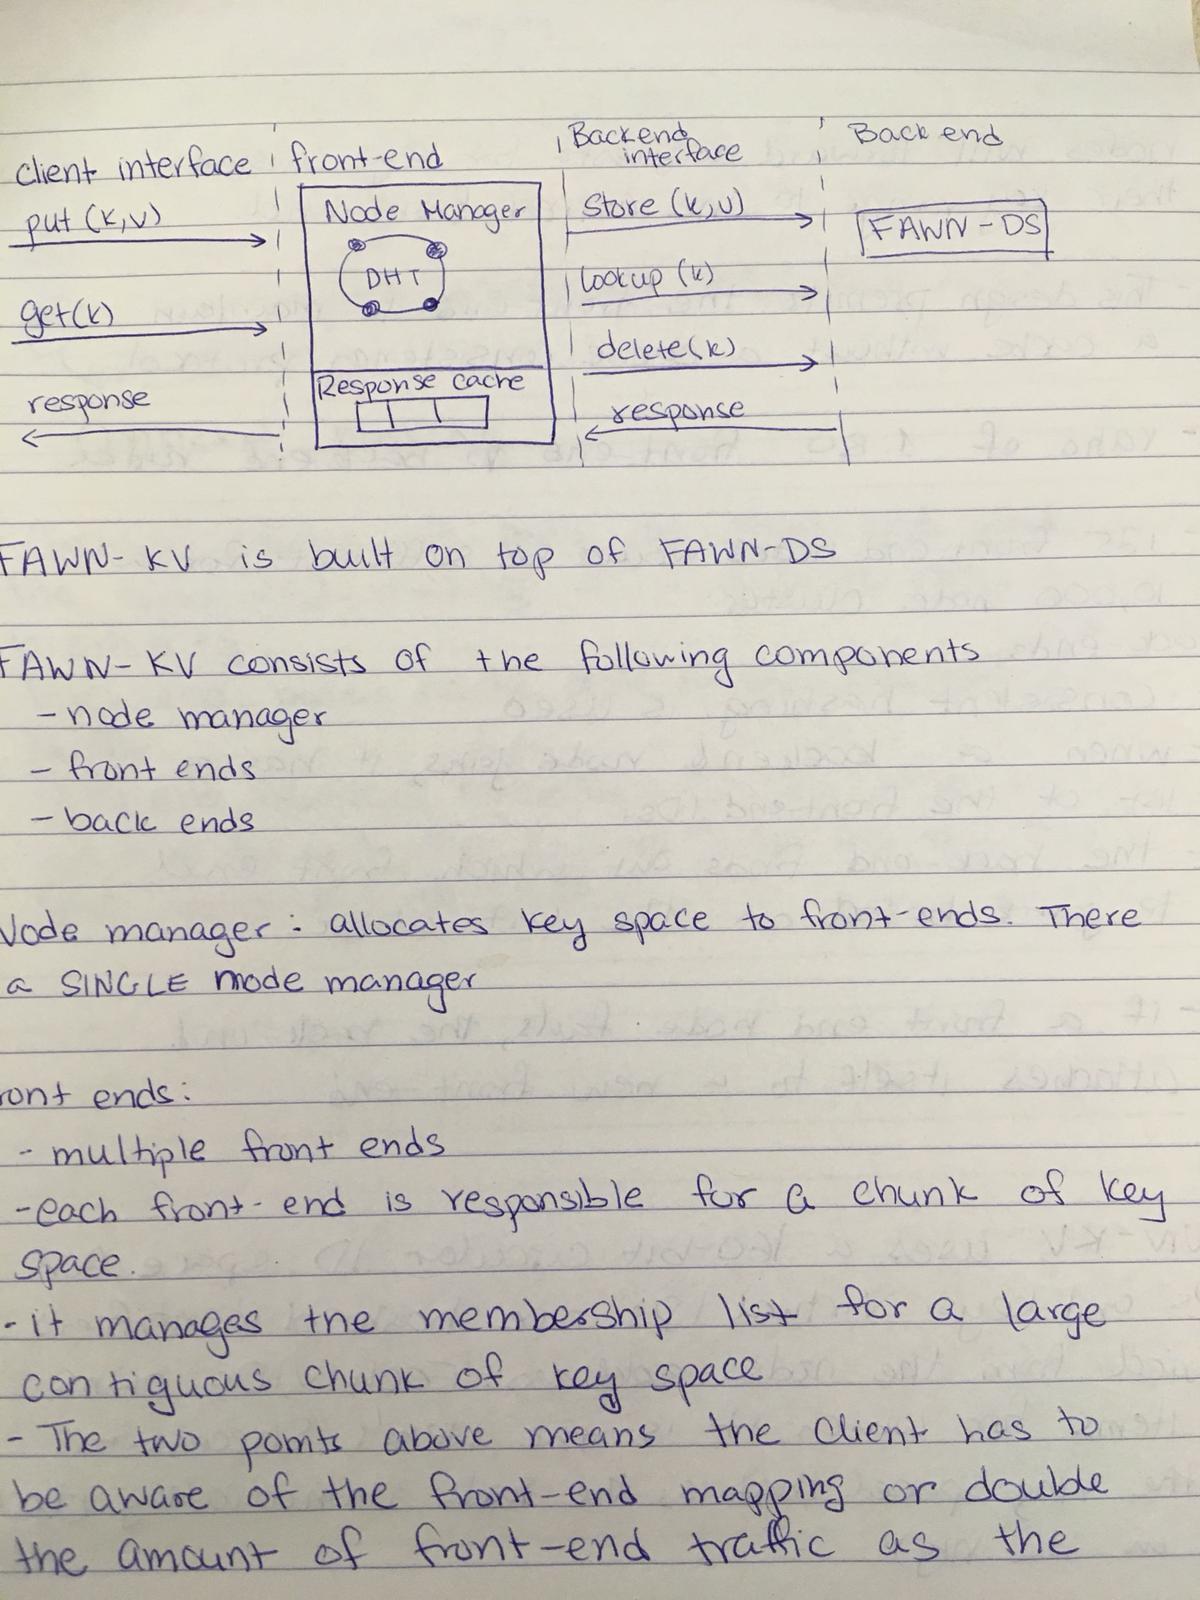 client interface
front-end
Backend
interface
Back end
put (k,v)
Node Manager
store (k,v)
FAWN-DS
DHT
lookup (k)
get(k)
delete(k)
Response cache
response
response
FAWN-KV is built on top of FAWN-DS
FAWN-KV consists of the following components
- node manager
- front ends
- back ends
Node manager : allocates key space to front-ends. There
a SINGLE node manager
ront ends:
- multiple front ends
- each front-end is responsible for a chunk of key
space.
- it manages the membership list for a large
contiguous chunk of key space
- The two points above means the client has to
be aware of the front-end mapping or double
the amount of front-end traffic as the